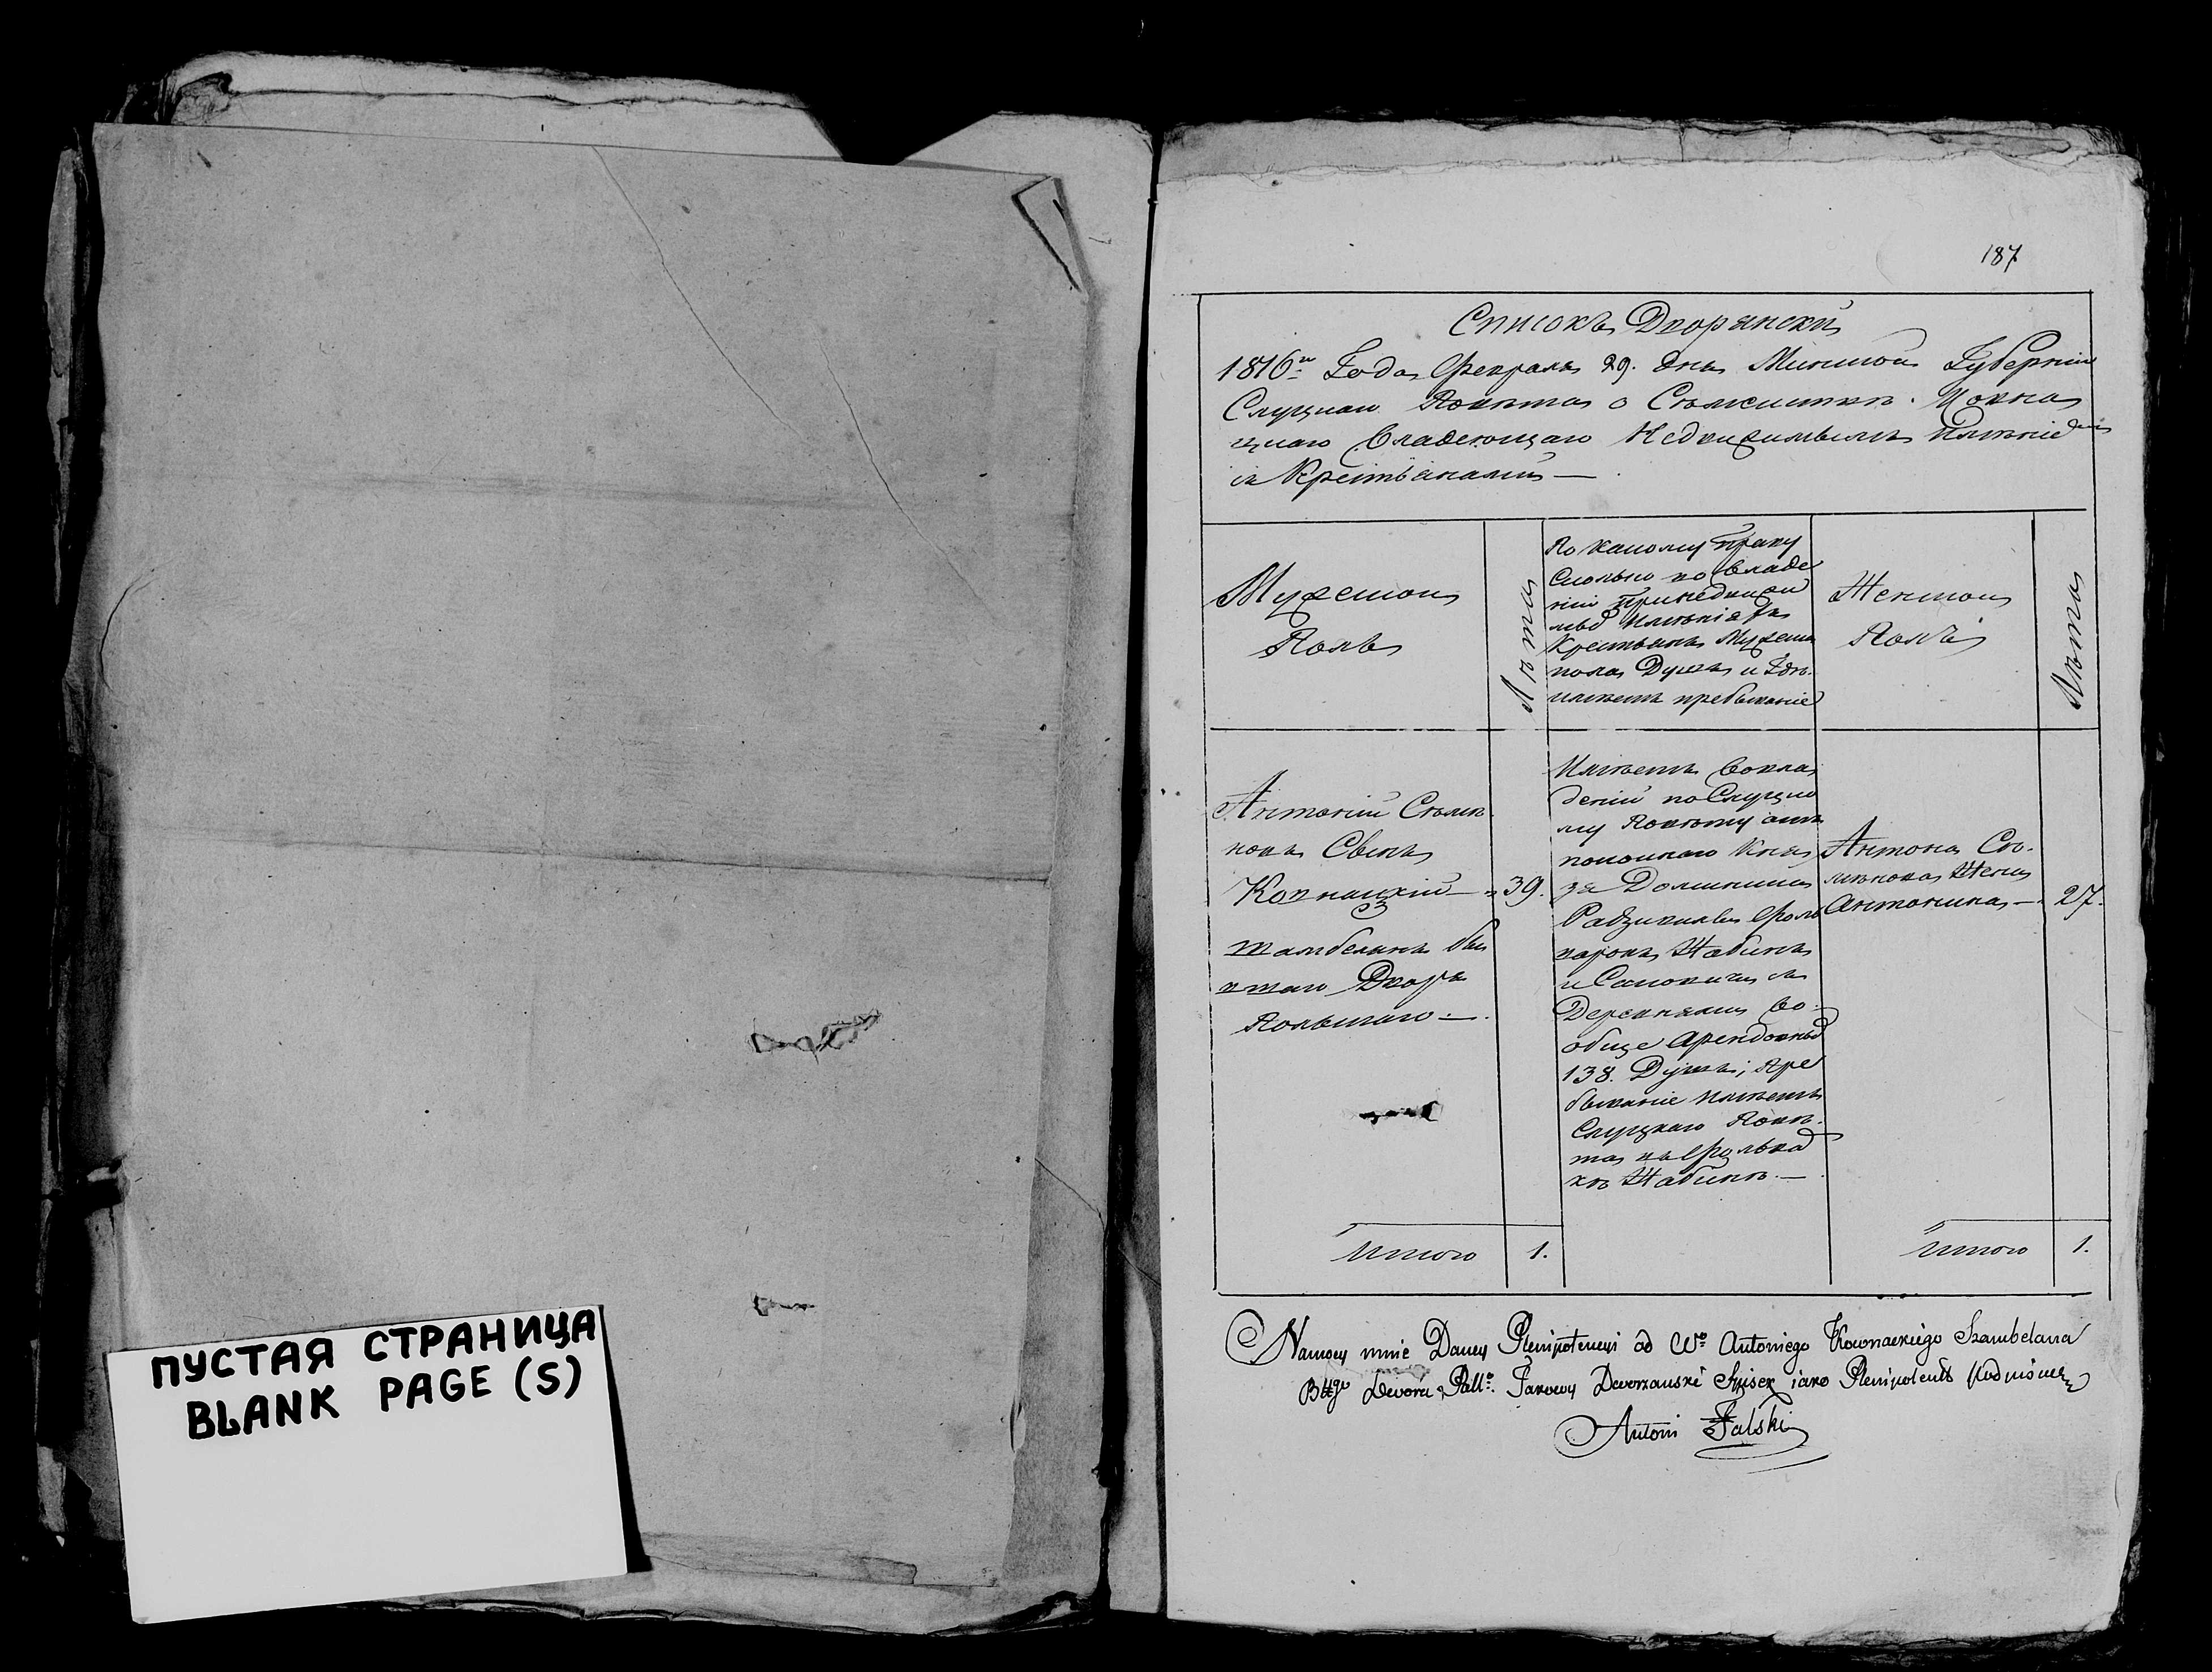 ПУСТАЯ СТРАНИЦА
BLANK PAGE (S)
187
Списокъ Дворянскій
1816го Года Февраля 29. дня Минской Губерніи
Слуцкаго Повѣта о
цкаго Владеющаго Недвижимымъ Имѣніем
съ Крестьянами —
Мужеской
Полъ
Лѣта
По какому праву
Сколько во владе
ніи
имѣнія
Крестьянъ Мужеска
пола Душъ и Гдѣ
имѣетъ пребываніе
Женской
Полъ
Лѣта
Антоній
новъ Сынъ
Ковнацкій — 39.
Шамбелянъ бы
вшаго Двора
Польскаго —.
Имѣетъ во вла
деніи по Слуцко
му Повѣту отъ
покойнаго Кня
зя Доминика
Радзивила Фоль
варокъ Жабинъ
и съ
Деревнями во
обще Арендовныхъ
138. Душъ; Пре
бываніе имѣетъ
Слуцкаго Повѣ
та въ Фольвар
кѣ Жабинѣ. —
Антона
Жена
Антонина — 27.
Итого 1.
Итого 1.
Na mocy mnie Daney Plenipotencyi od Wo Antoniego Kownackiego Szambelana
Bttgo Dworu Poll: Takowy Dworzanski Spisek iako Plenipotent Podpisuię
Antoni Falski